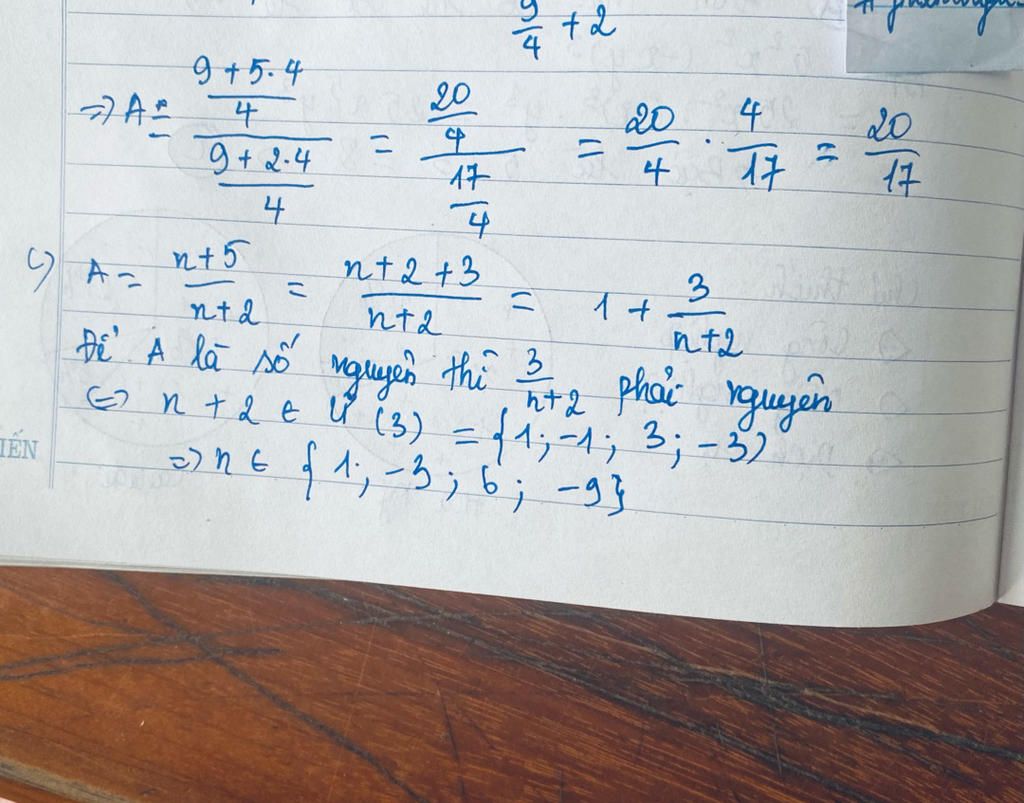 9/4 + 2
=> A = ((9+5·4)/4)/((9+2·4)/4) = (20/4)/(17/4) = 20/4 · 4/17 = 20/17
c) A = (n+5)/(n+2) = (n+2+3)/(n+2) = 1 + 3/(n+2)
Để A là số nguyên thì 3/(n+2) phải nguyên
<=> n + 2 ∈ Ư (3) = {1; -1; 3; -3)
=> n ∈ { 1; -3; 6; -9}
IẾN